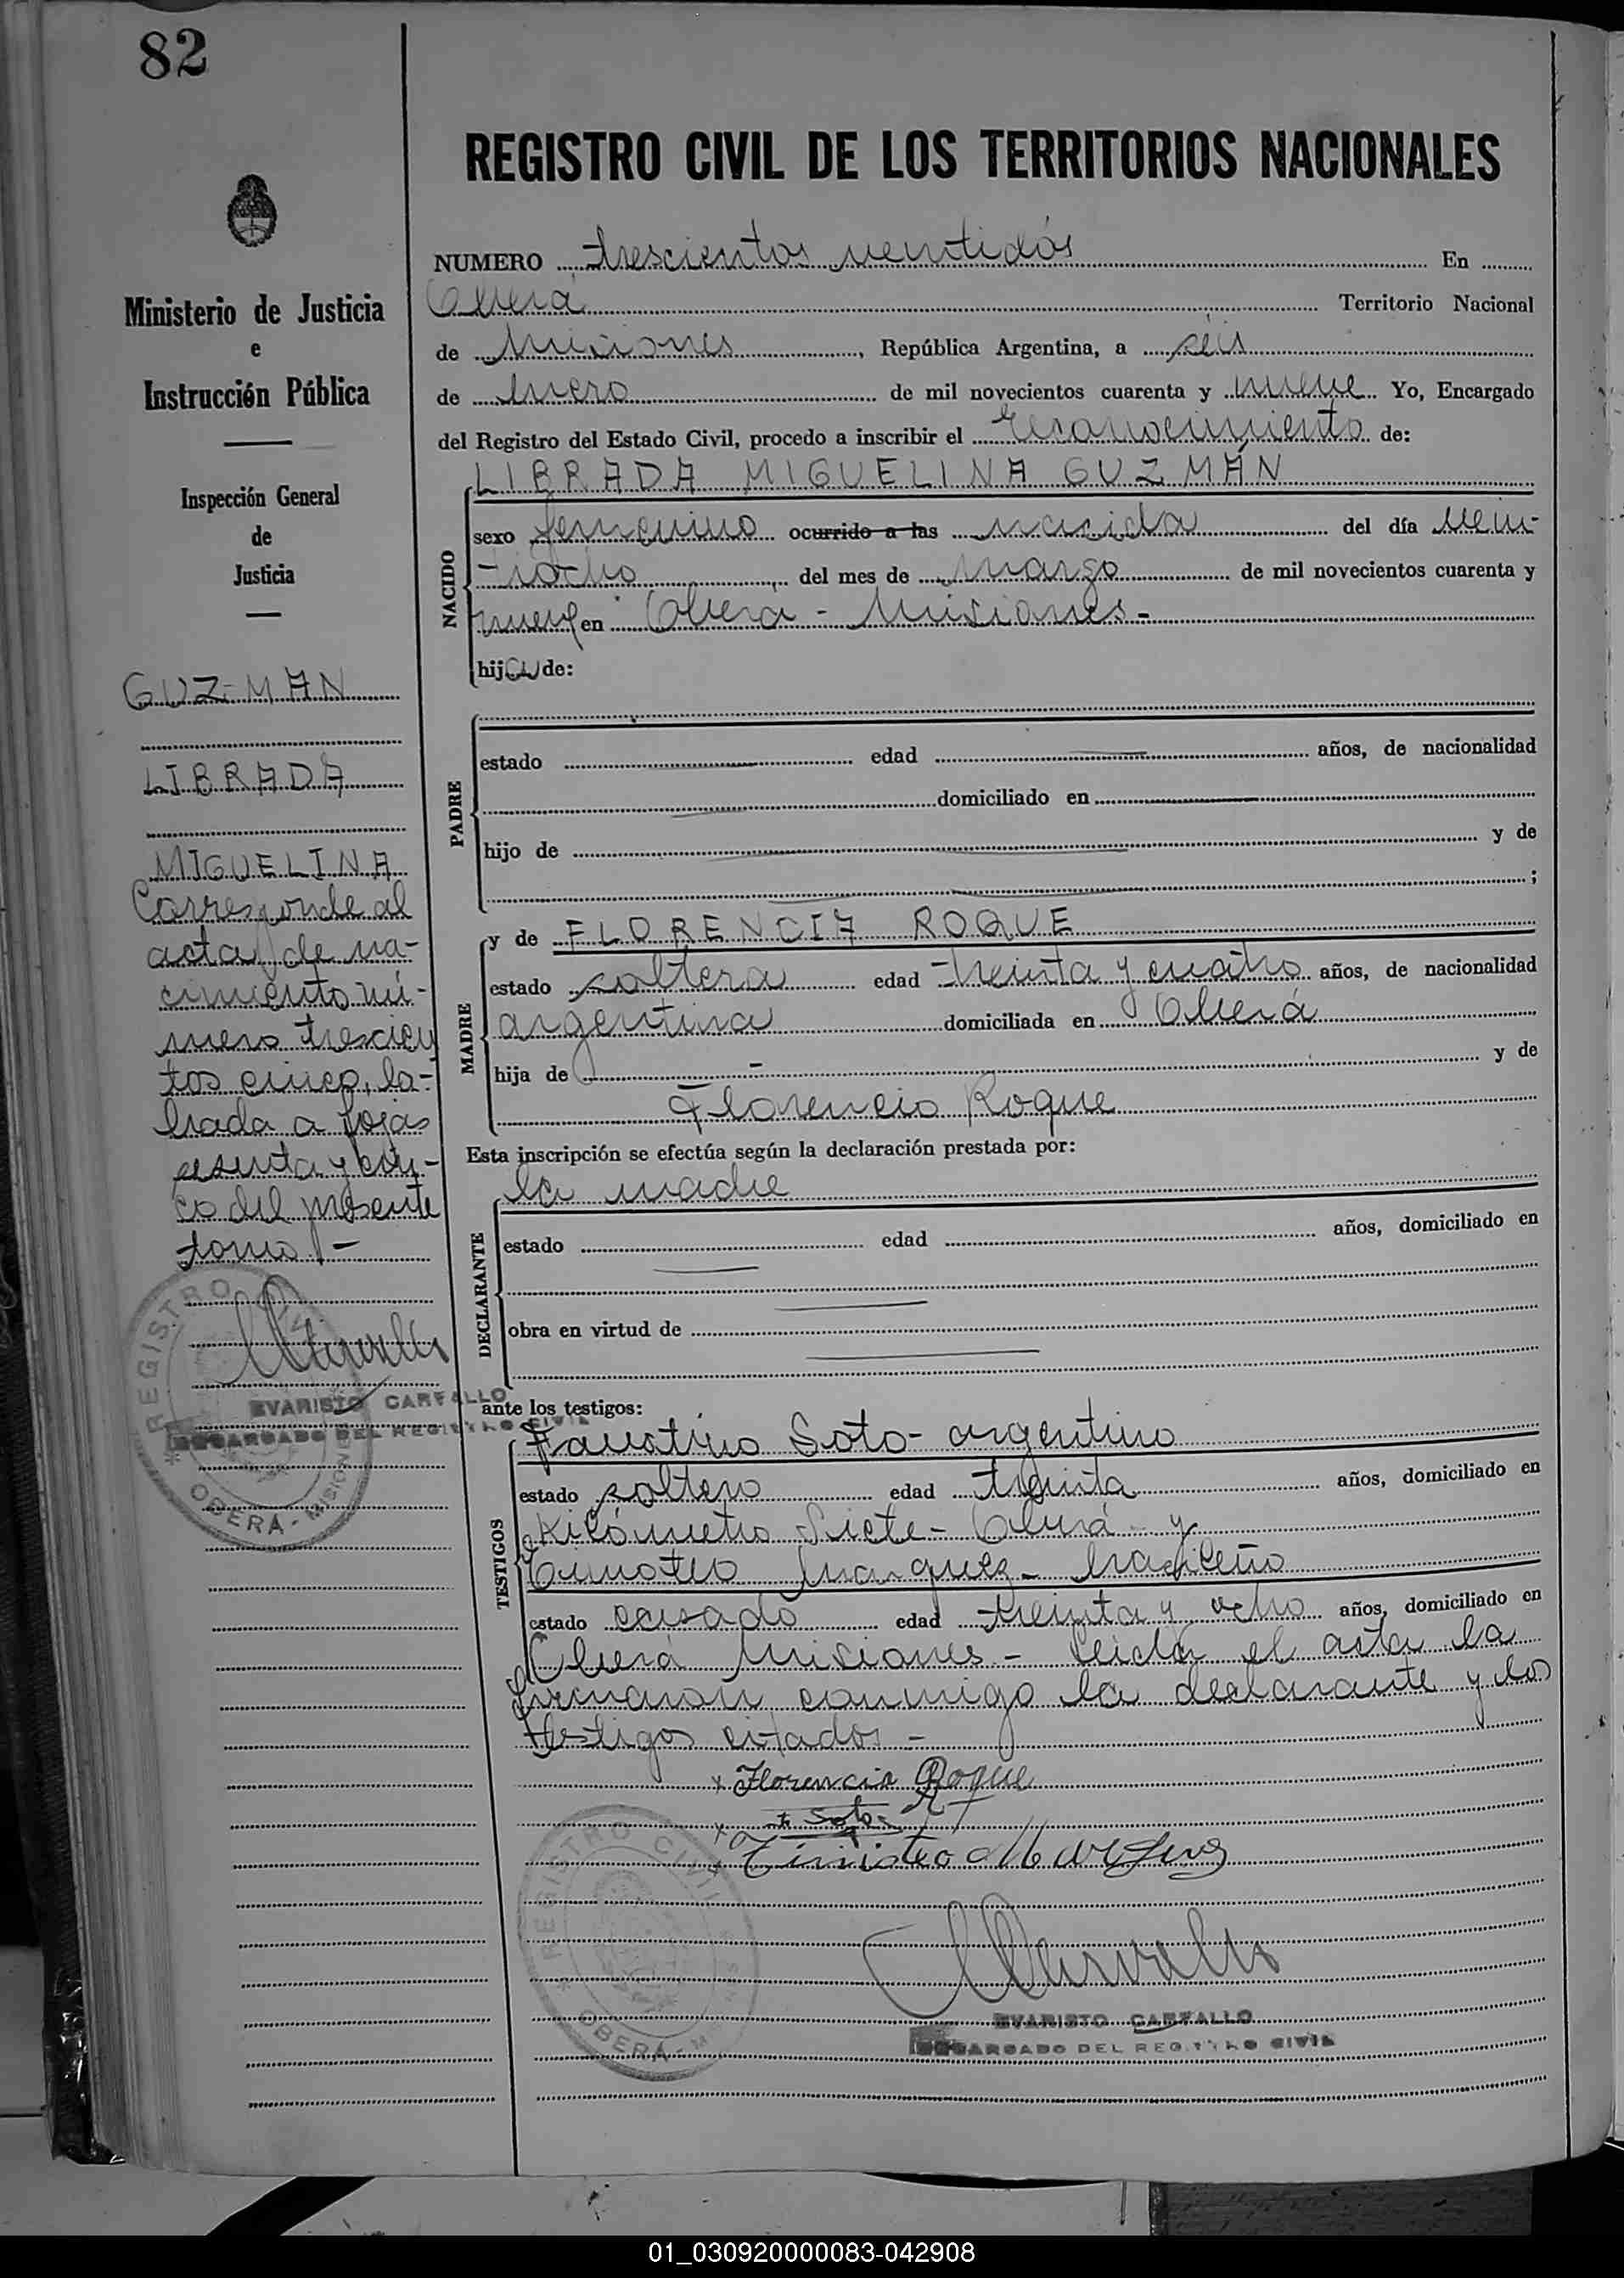 82
REGISTRO CIVIL DE LOS TERRITORIOS NACIONALES
Ministerio de Justicia
e
Instrucción Pública
Inspección General
de
Justicia
GUZ-MAN
LIBRADA
MIGUELINA
Corresponde al
acta de na-
cimiento nú-
mero trescien
tos cinco, la-
brada a fojas
sesenta y cin-
co del presente
tomo -
REGISTRO CIVIL
OBERÁ - MISIONES
EVARISTO CARVALLO
ENCARGADO DEL REGISTRO CIVIL
NUMERO trescientos ventidós En
Oberá Territorio Nacional
de Misiones, República Argentina, a séis
de Enero de mil novecientos cuarenta y nueve Yo, Encargado
del Registro del Estado Civil, procedo a inscribir el reconocimiento de:
LIBRADA MIGUELINA GUZMÁN
NACIDO
sexo femenino ocurrido a las nacida del día vein-
tiocho del mes de marzo de mil novecientos cuarenta y
nueve en Oberá - Misiones -
hija de:
PADRE
estado edad años, de nacionalidad
domiciliado en
hijo de y de
;
MADRE
y de FLORENCIA ROQUE
estado soltera edad treinta y cuatro años, de nacionalidad
argentina domiciliada en Oberá
hija de - y de
Florencio Roque
Esta inscripción se efectúa según la declaración prestada por:
la madre
DECLARANTE
estado edad años, domiciliado en
obra en virtud de
ante los testigos:
TESTIGOS
Faustino Soto - argentino
estado soltero edad treinta años, domiciliado en
Kilómetro Siete - Oberá y
Timoteo Marquez - brasileño
estado casado edad treinta y ocho años, domiciliado en
Oberá Misiones - Leída el acta la
firmaron conmigo la declarante y los
testigos citados -
x Florencia Roque
x Soto
x Timoteo Marquez
REGISTRO CIVIL
OBERÁ - MISIONES
EVARISTO CARVALLO
ENCARGADO DEL REGISTRO CIVIL
01_030920000083-042908